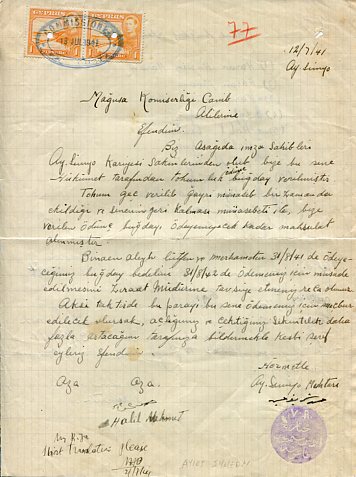 COMMISSIONER
77
12/7/41
Ay. Simyo
Mağusa Komiserliği Canib
Alilerine
Efendim.
Biz Aşağıda imza Sahibleri
Ay. Simyo Karyesi Sakinlerinden olub bize bu sene
Hükümet tarafından tohumluk ödünç buğday verilmiştir
Tohum geç verilib gayri münasib bir zamanda
ekildiği ve senenin geri kalması münasebeti ile, bize
verilen ödünç buğdayı ödeyemeyecek kadar mahsulat
alınmıştır.
Binaen aleyh lütfen ve merhameten 31/8/41 de ödeye-
ceğimiz buğday bedelini 31/8/42 de ödememiz için müsade
edilmesini Ziraat Müdirine tavsiye etmeniz rica olunur.
Aksi takdide bu parayı bu sene ödememiz için mecbur
edilecek olursak, açlığımız ve çektiğimiz Sıkıntılık daha
fazla artacağını tarafınıza bildirmekle kesbi şeref
eyleriz efendim
Hürmetle
Aza Aza. Ay. Simyo, Muhtarı
Halil Mehmet
Short Translation Please